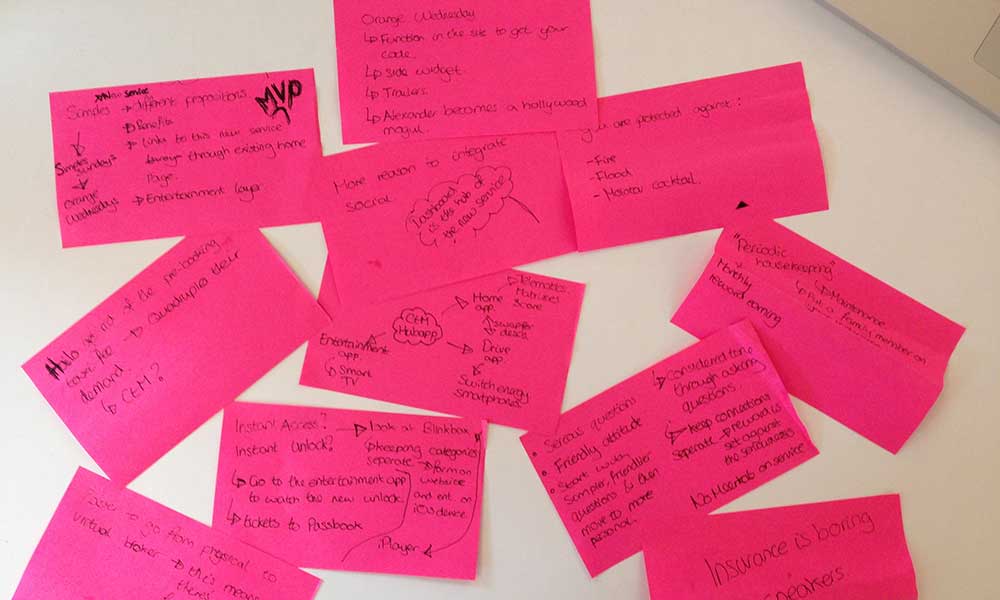 Orange Wednesday
↳ Function in the site to get your
code.
↳ side widget.
↳ Trailers.
↳ Alexander becomes a hollywood
mogul.
service
Samples → different propositions.
MVP
→ Benefits
→ Links to this new service
through existing home
Page.
→ Entertainment layer
Simples
Sundays
Orange
Wednesdays
More reason to integrate
social.
Dashboard
is the hub of
the new service
you are protected against:
- Fire
- Flood
- Molotov cocktail.
"Periodic
housekeeping"
Monthly
reward earning
↳ Maintenance
↳ Put a family member on
Hailo got rid of the pre-booking
taxi fee → Quadruple their
demand.
↳ CtM?
CtM
Hubapp
Home
app.
Telematics.
Matrixes
Score
swap for
deals.
Drive
app.
Switch energy
smartphones.
Entertainment
app.
↳ Smart
TV
Instant Access?
Instant Unlock?
→ look at Blinkbox
keeping categories
seperate → form on
website
and ent. on
device.
↳ Go to the entertainment app
to watch the new unlock.
↳ tickets to Passbook
iPlayer
• Serious questions
• Friendly attitude
• Start with
Simpler, friendlier
questions & then
move to more
personal.
↳ Considered tone
through asking
questions.
→ keep connections
seperate → reward is
set against
the seriousness
No Meerkats on service
Easier to go from physical to
virtual broker → this means
there's
Insurance is boring
speakers